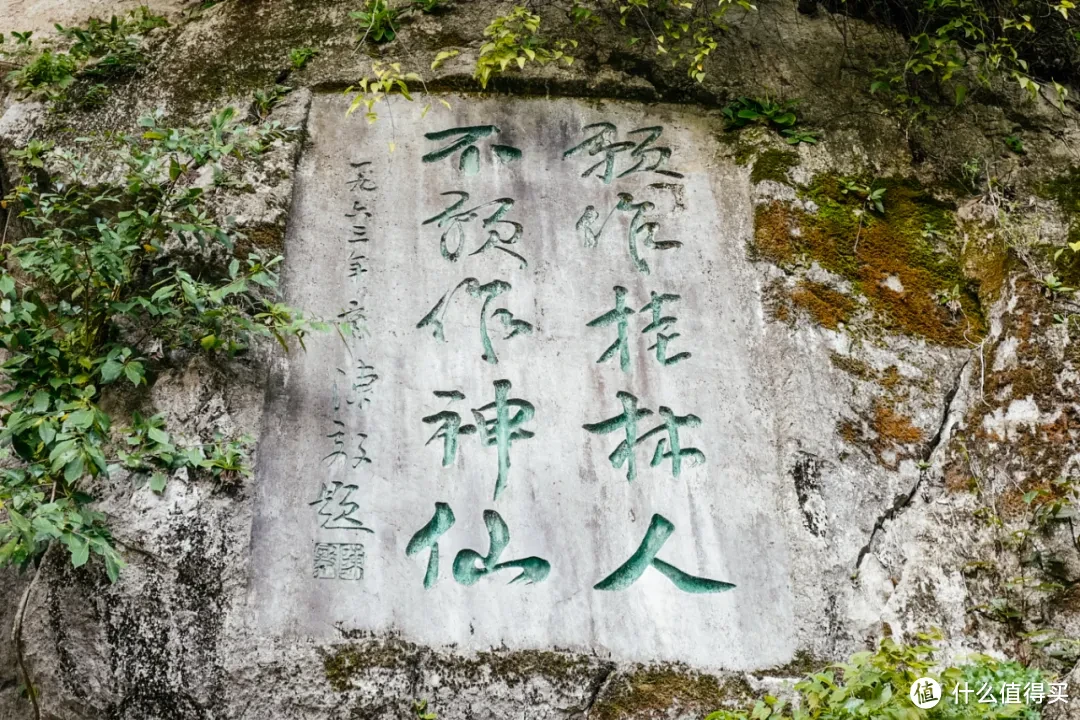 願作桂林人
不願作神仙
一九六三年 陳毅題
值 什么值得买